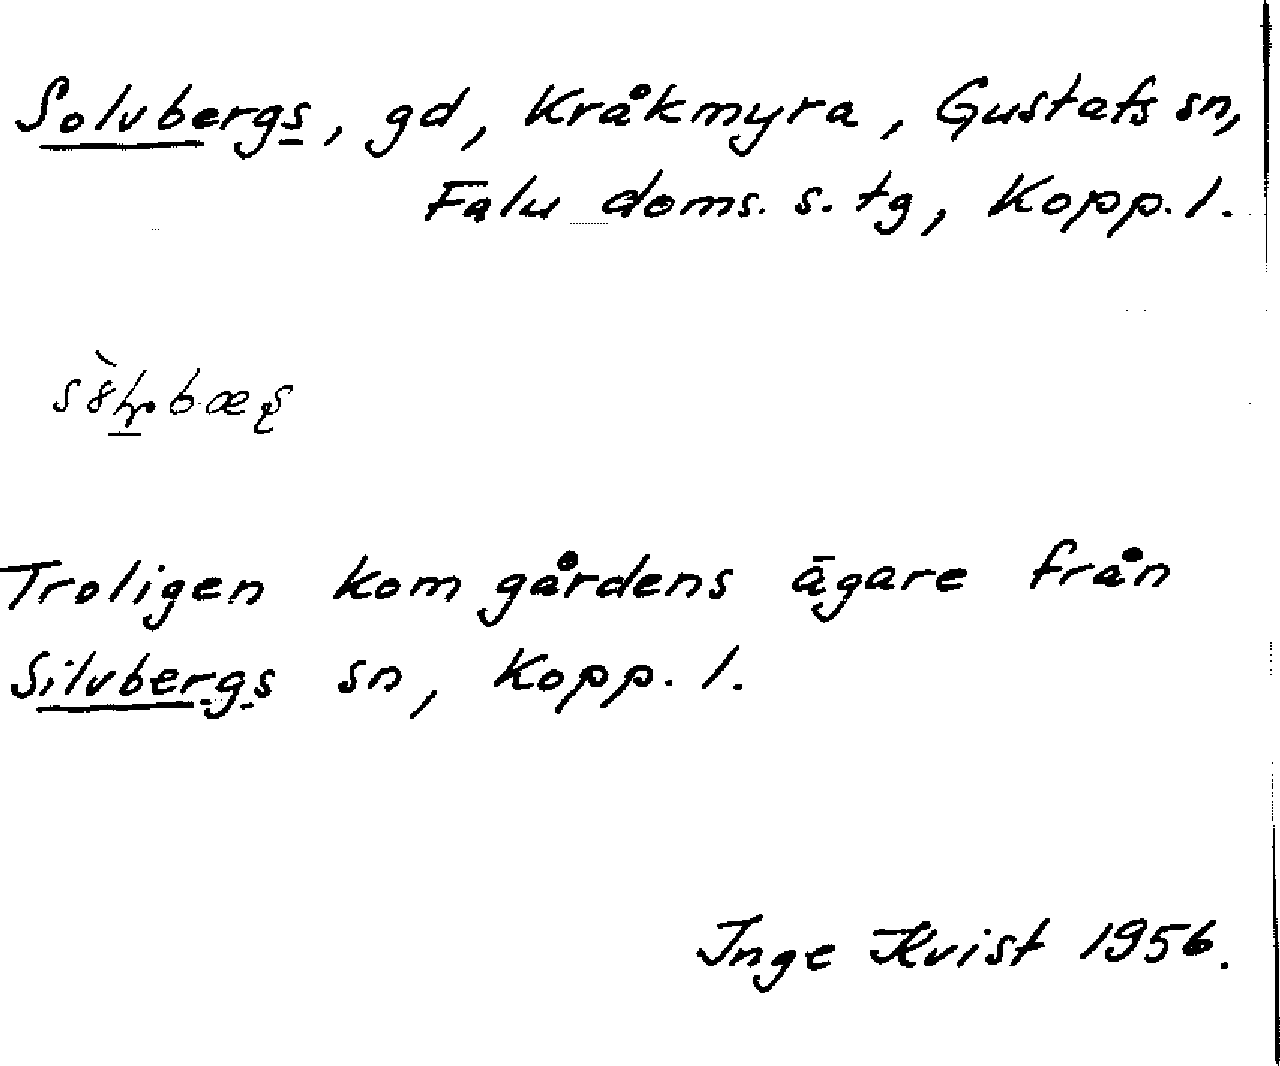 Solvbergs, gd, Kråkmyra, Gustafs sn,
Falu doms. s. tg, Kopp. l.
Troligen kom gårdens ägare från
Silvbergs sn, Kopp. l.
Inge Kvist 1956.